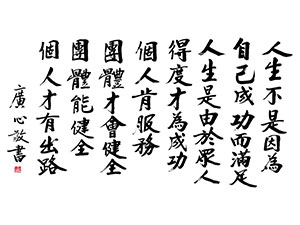 人生不是因為
自己成功而滿足
人生是由於眾人
得度才為成功
個人肯服務
團體才會健全
團體能健全
個人才有出路
廣心敬書